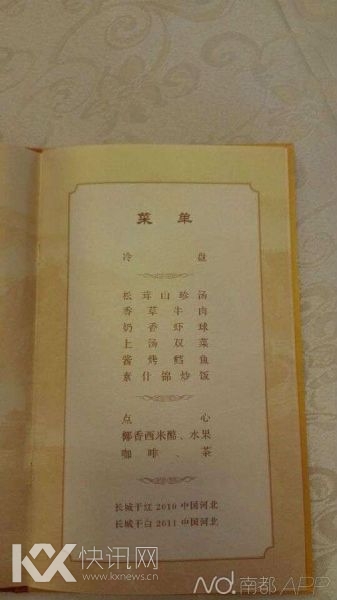 菜单
冷盘
松茸山珍汤
香草牛肉
奶香虾球
上汤双菜
酱烤鳕鱼
素什锦炒饭
点心
椰香西米酪、水果
咖啡、茶
长城干红 2010 中国河北
长城干白 2011 中国河北
KX快讯网
www.kxnews.cn
ND.南都APP